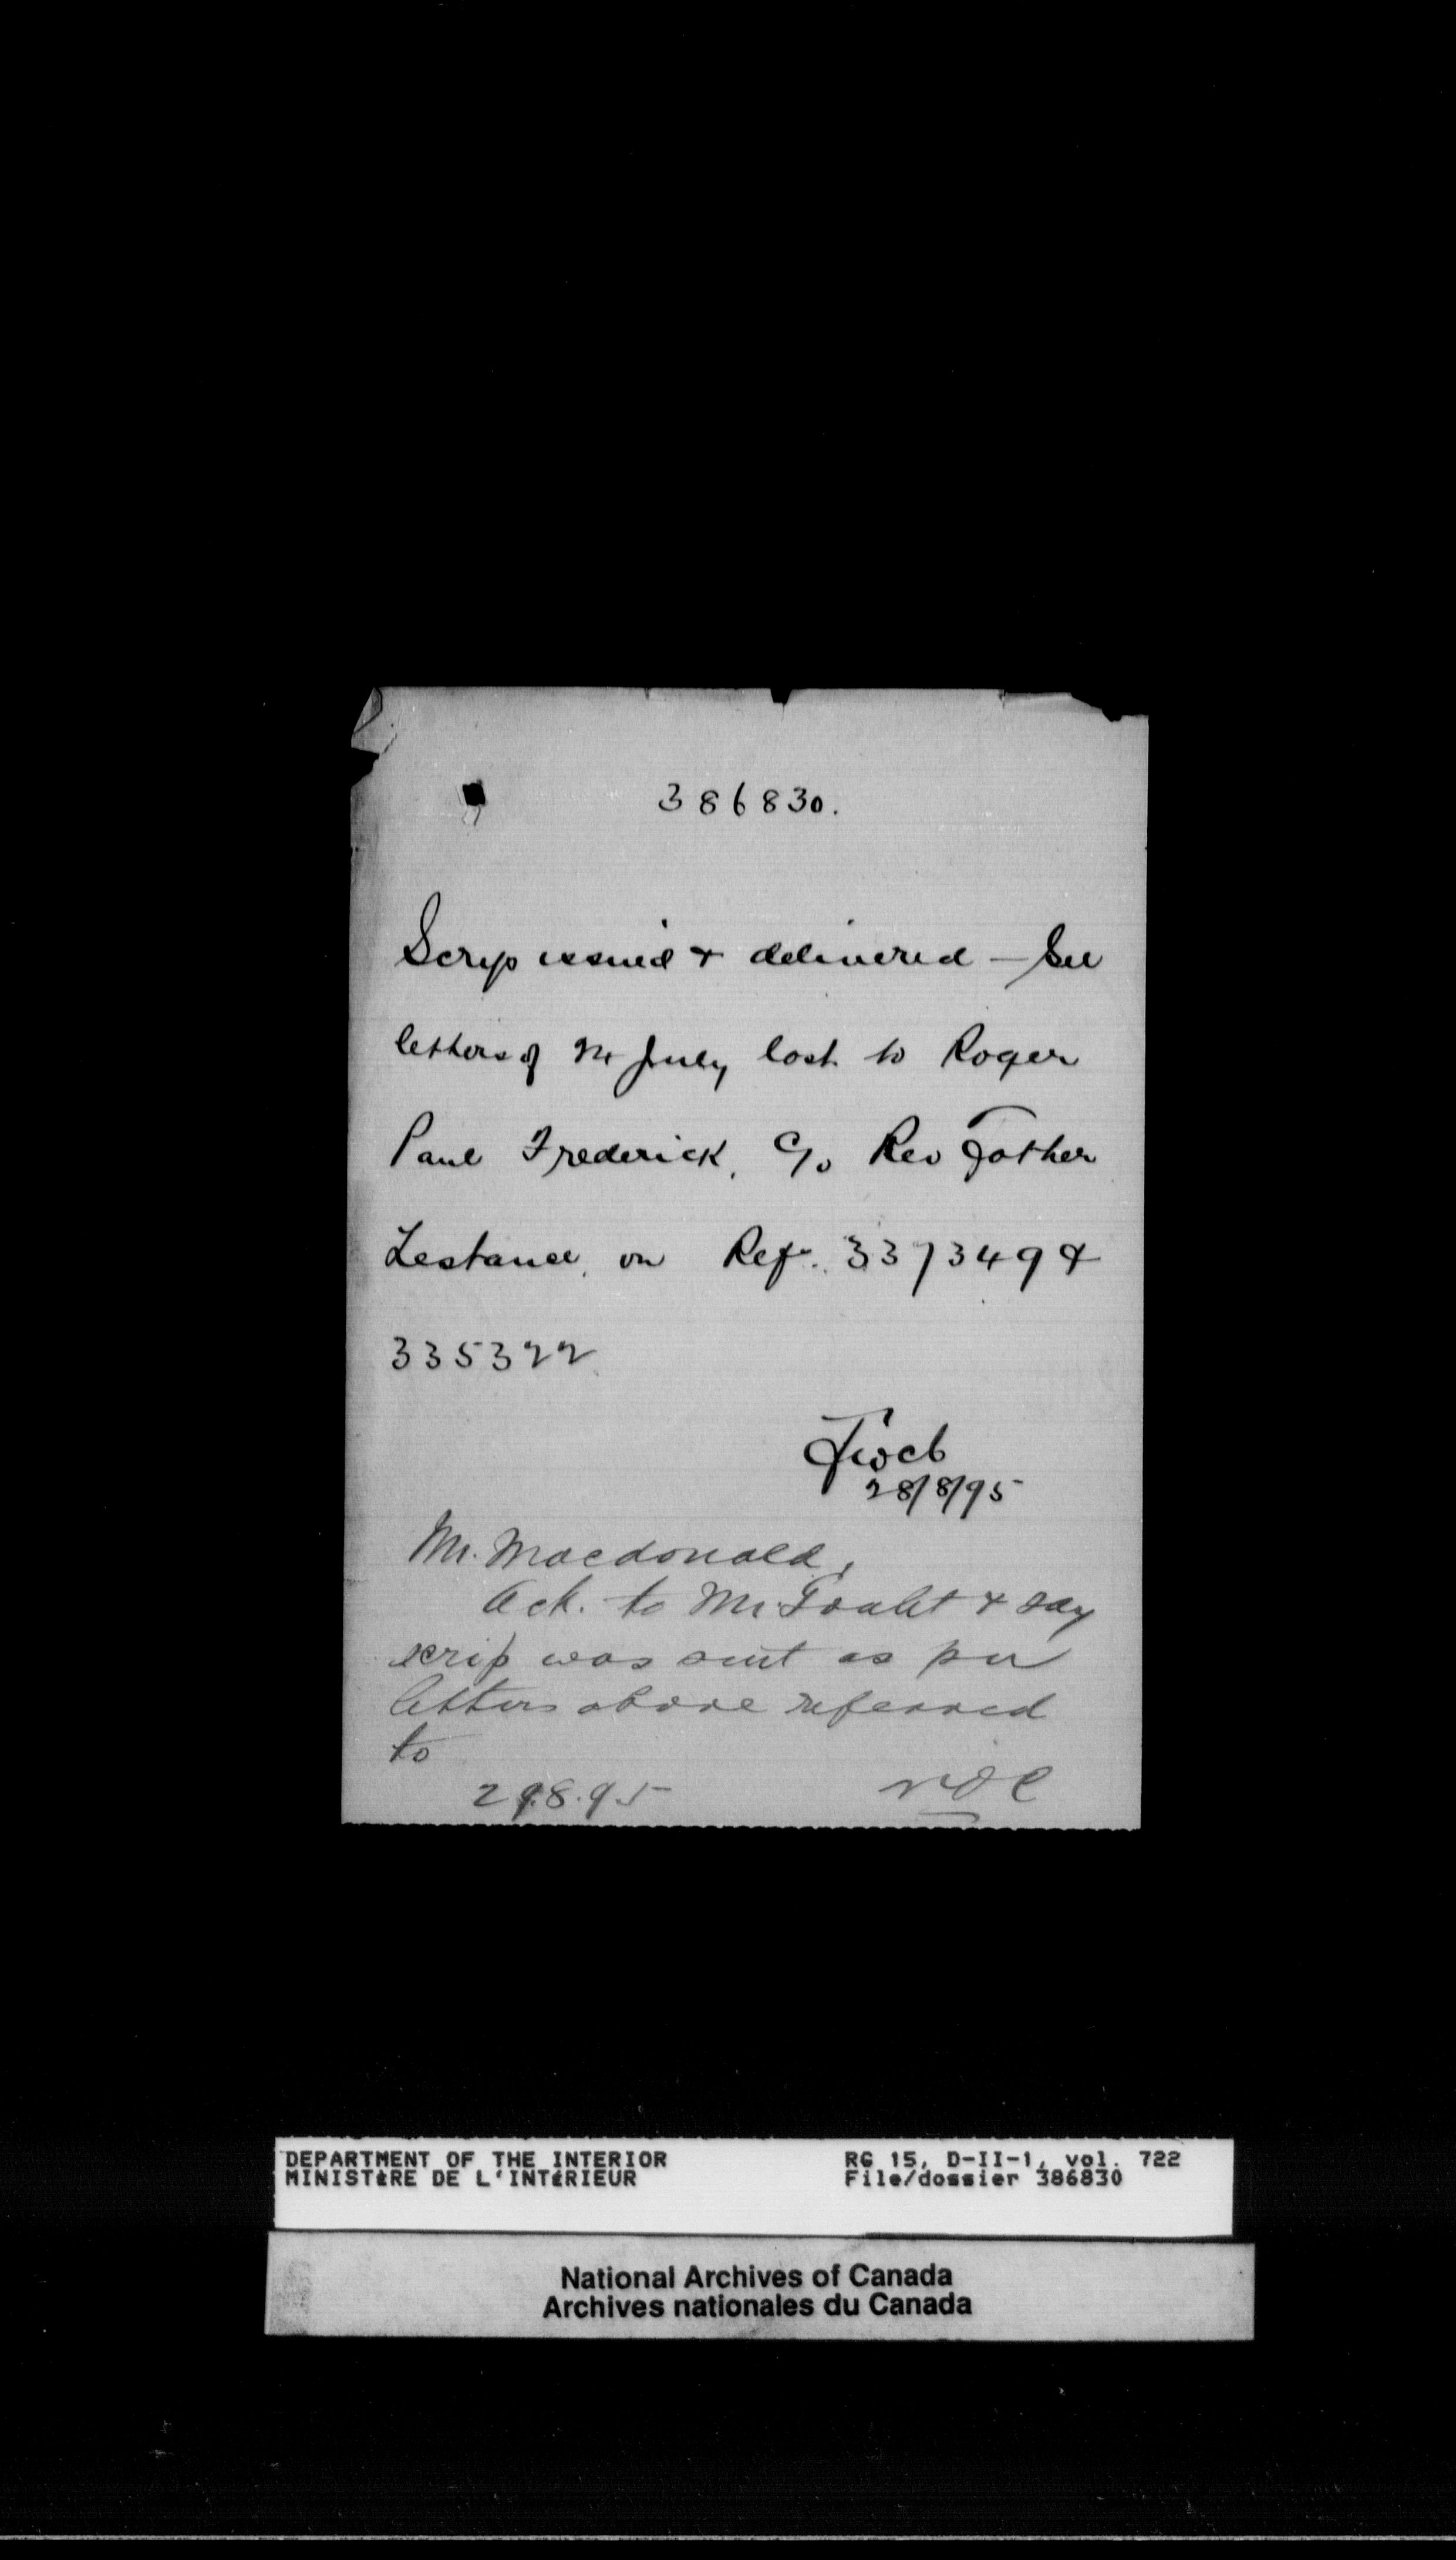 386830.
Scrip issued & delivered — See
letters of July last to Roger
Paul Frederick, c/o Rev Father
Lestanc, on Ref. 337349 &
335322
28/8/95
Mr. Macdonald,
Ack. to Mr. & say
scrip was sent as per
letters above referred
to
29.8.95
DEPARTMENT OF THE INTERIOR
MINISTÈRE DE L'INTÉRIEUR
RG 15, D-II-1, vol. 722
File/dossier 386830
National Archives of Canada
Archives nationales du Canada